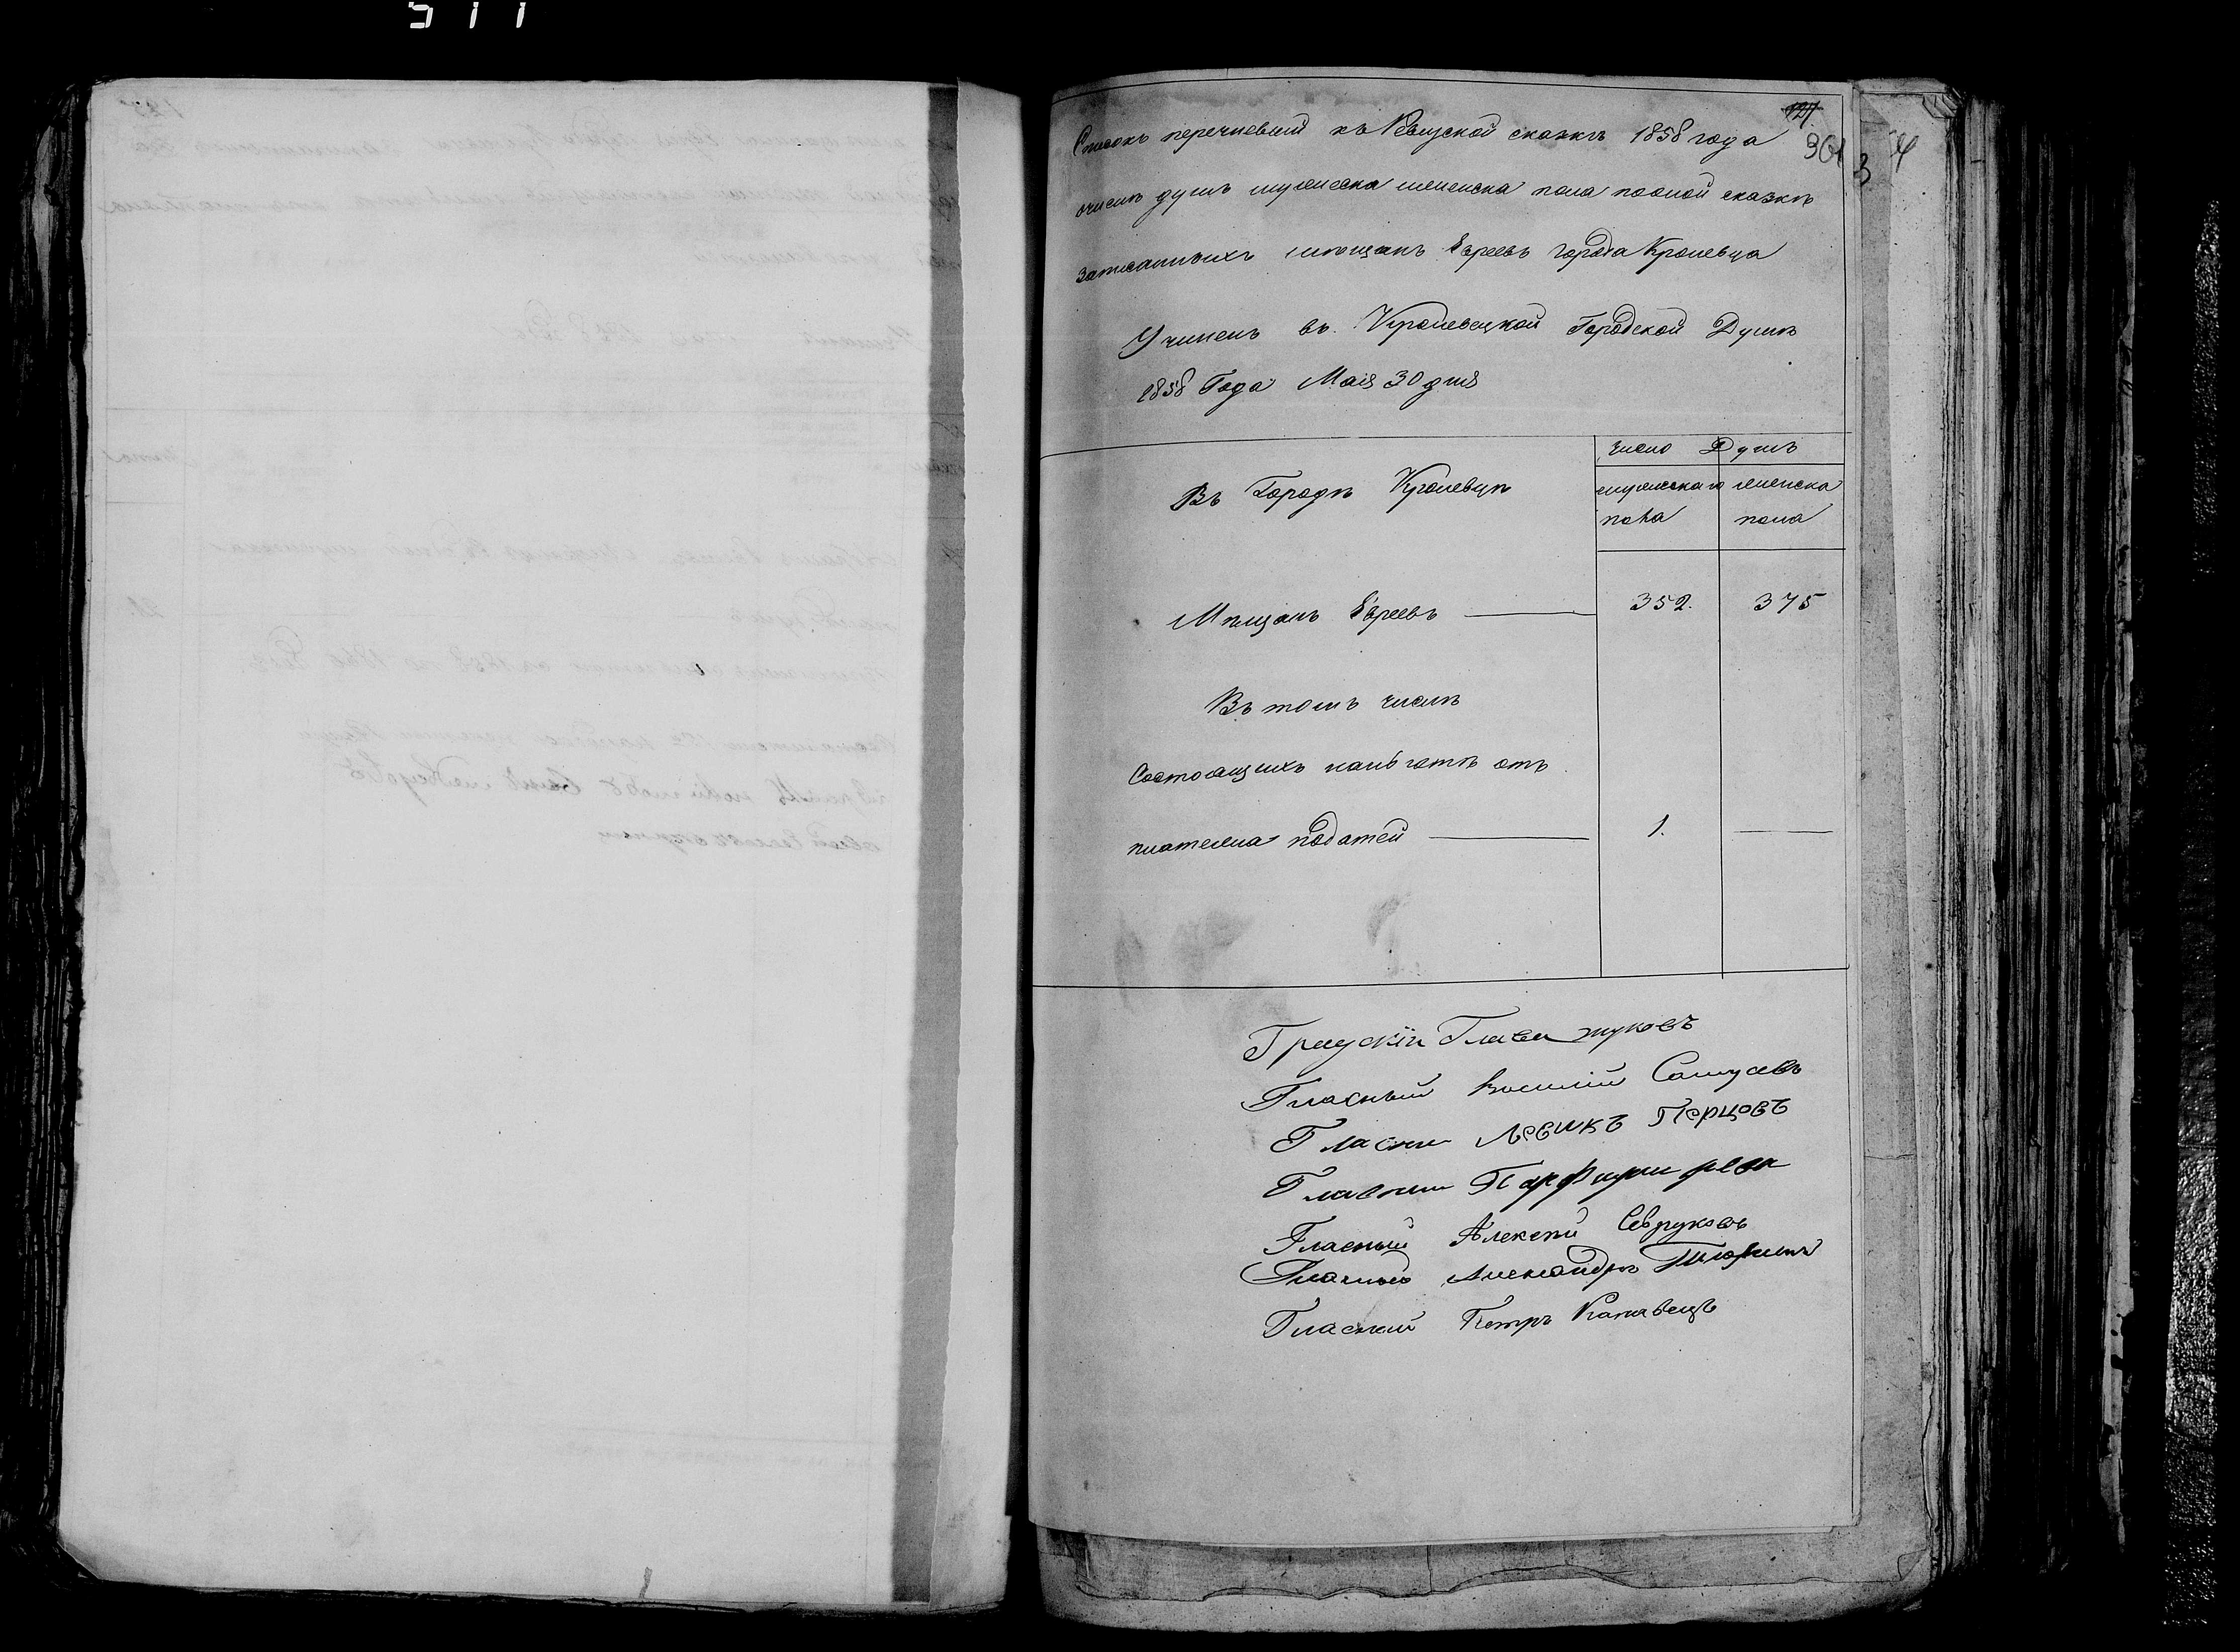 127
361
Списокъ перечневый къ Ревизской сказкѣ 1858 года
очислѣ душъ мужеска женска пола поэтой сказкѣ
записанныхъ мѣщанъ Евреевъ города Кролевца
Учиненъ въ Кролевецкой Городской Думѣ
1858 Года Маія 30 дня
Въ Городѣ Кролевцѣ
Число Душъ
мужескаго женска
пола пола
Мѣщанъ Евреевъ 352. 375
Въ томъ числѣ
Состоящихъ нальготѣ отъ
платежа податей 1.
Градскій Глава Жуковъ
Гласный Василій
Гласни Левикъ Перцовъ
Гласнии Парфири
Гласный Алексѣй Севруковъ
Гласный Александръ
Гласный Петръ